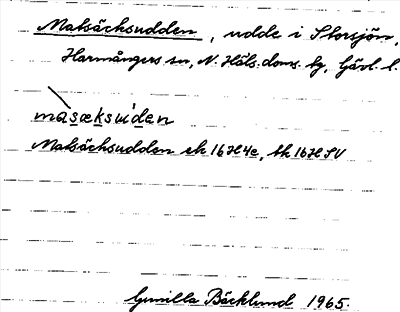 Matsäcksudden, udde i Storsjön,
Harmångers sn, N. Häls. doms. tg, Gävl. l.
màsæksúden
Matsäcksudden ek 16H4e, tk 16H SV
Gunilla Bäcklund 1965.